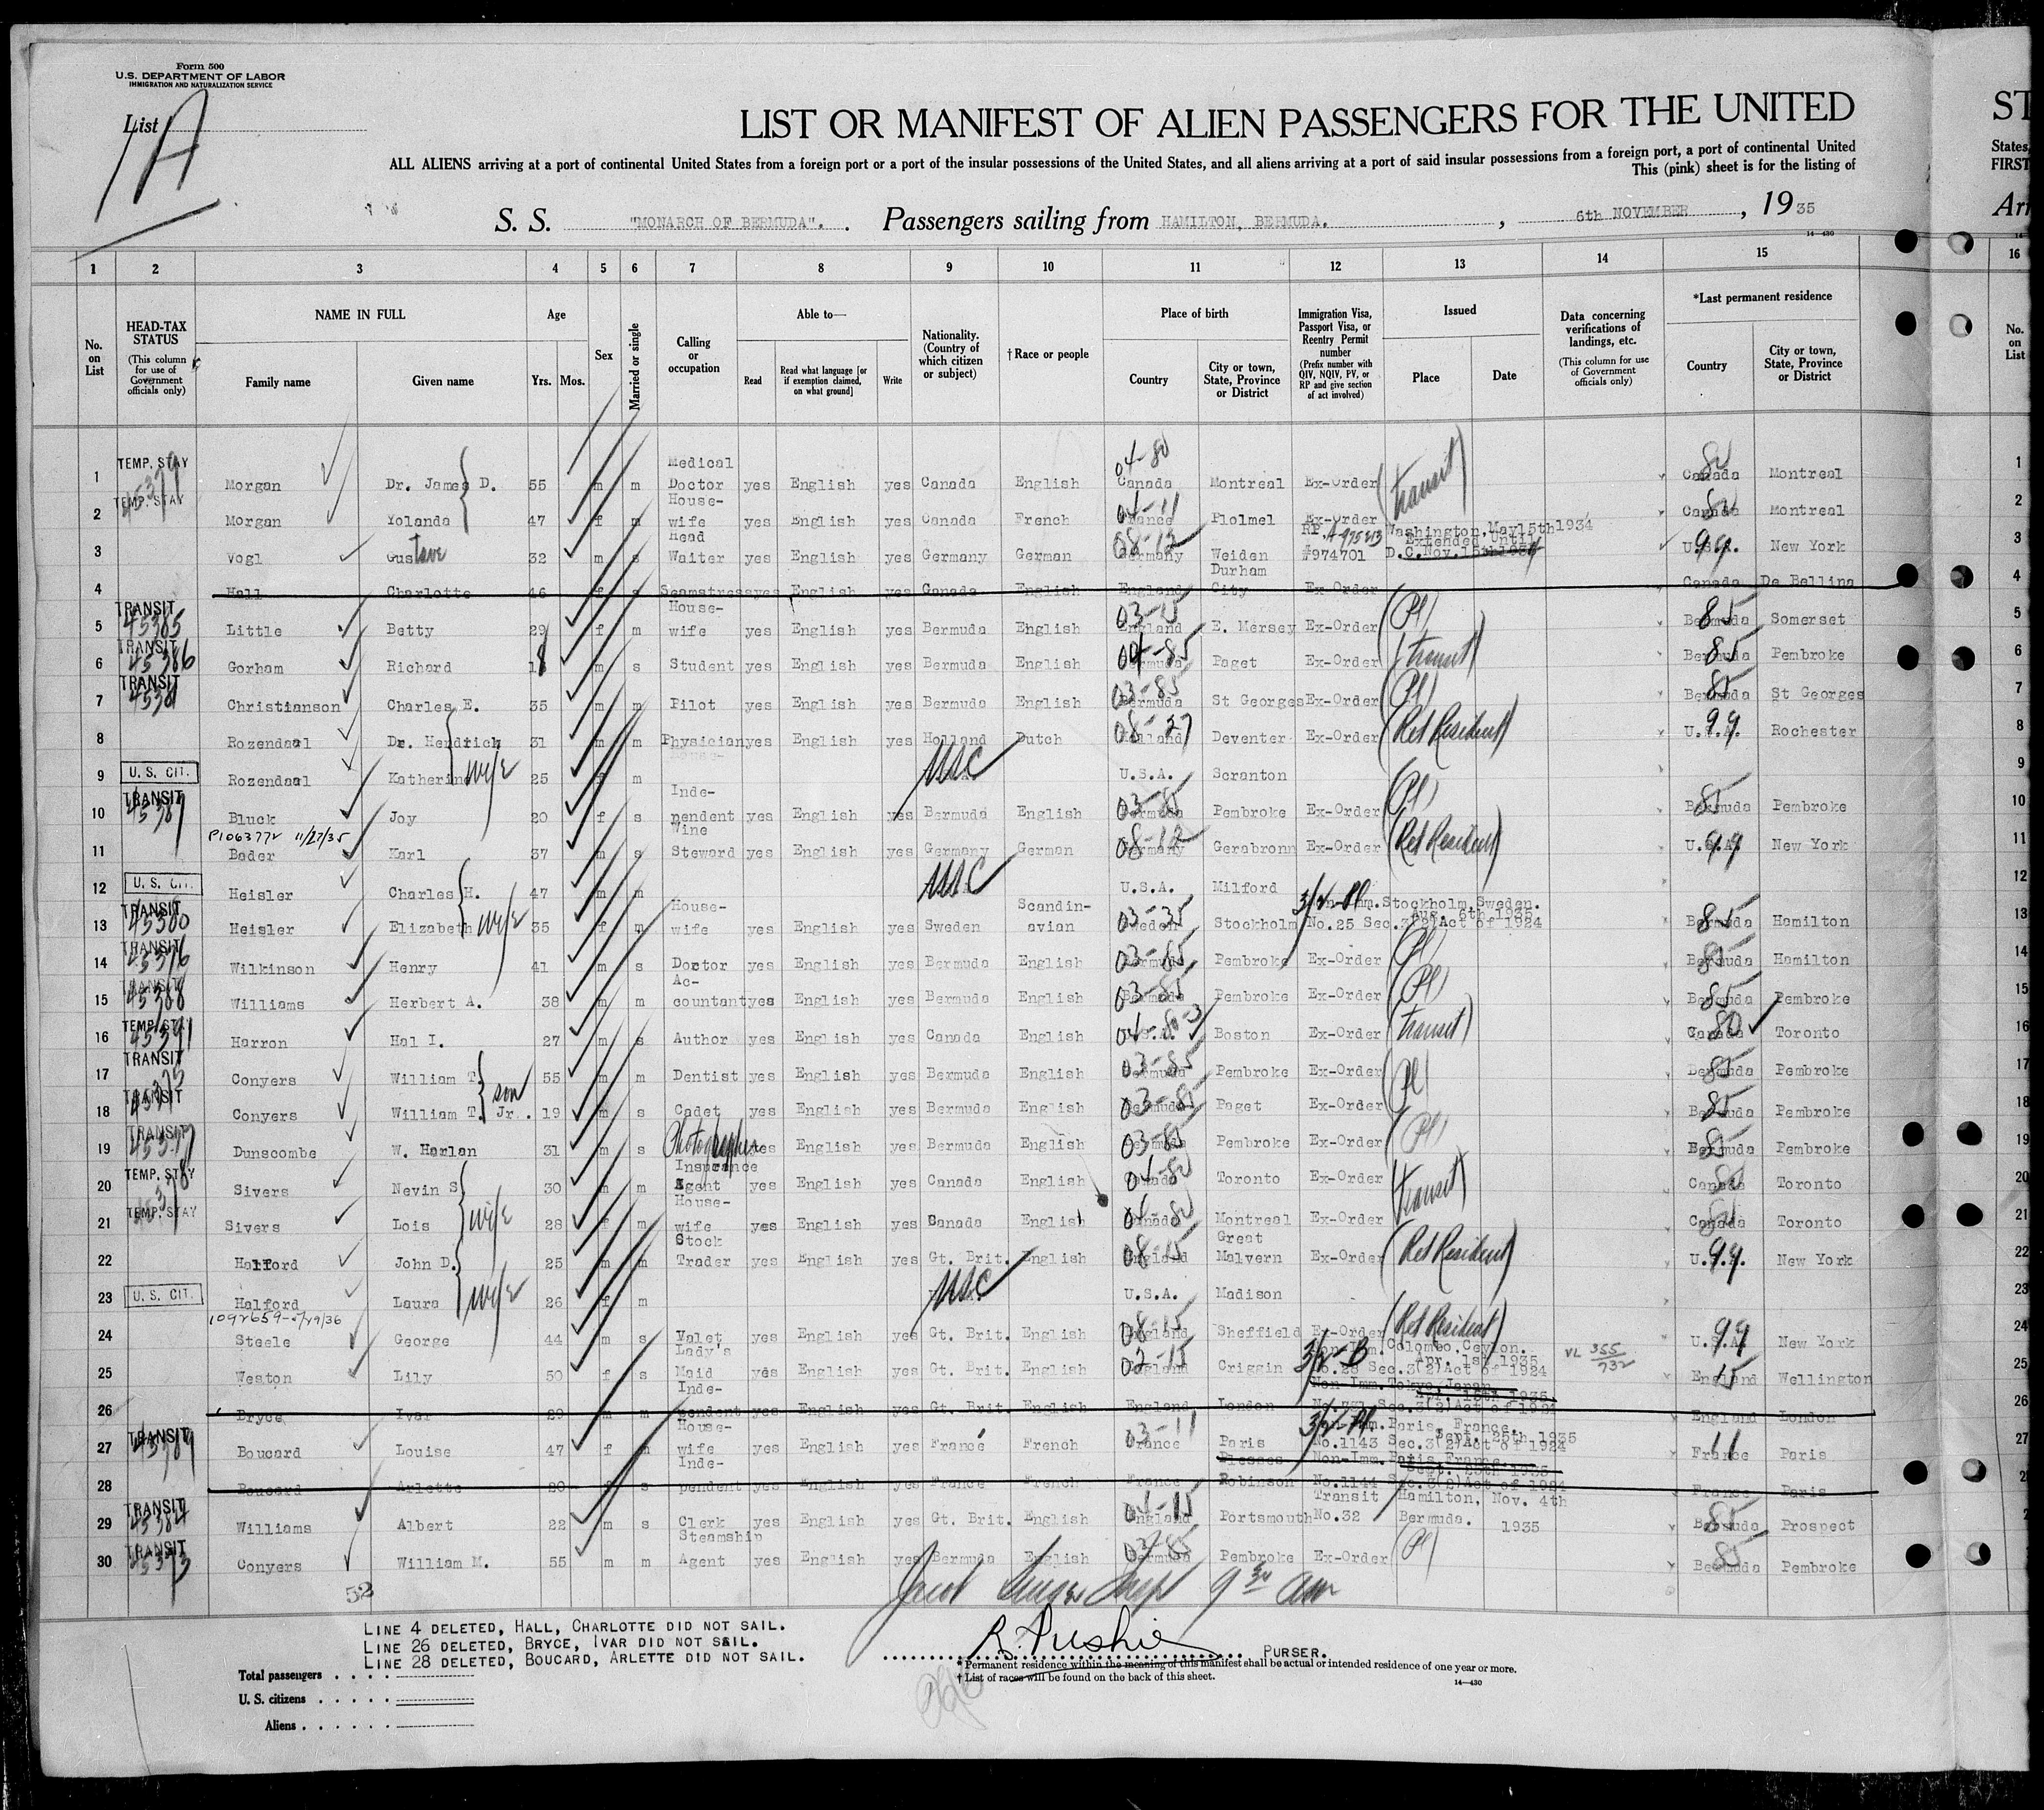 Form 500
U.S. DEPARTMENT OF LABOR
IMMIGRATION AND NATURALIZATION SERVICE
List 1A
LIST OR MANIFEST OF ALIEN PASSENGERS FOR THE UNITED ST
ALL ALIENS arriving at a port of continental United States from a foreign port or a port of the insular possessions of the United States, and all aliens arriving at a port of said insular possessions from a foreign port, a port of continental United States,
This (pink) sheet is for the listing of FIRST
S. S. "MONARCH OF BERMUDA". Passengers sailing from HAMILTON, BERMUDA. , 6th NOVEMBER , 1935
14—430
1 2 3 4 5 6 7 8 9 10 11 12 13 14 15 16
No. on List
HEAD-TAX STATUS (This column for use of Government officials only)
NAME IN FULL Family name Given name
Age Yrs. Mos.
Sex
Married or single
Calling or occupation
Able to— Read Read what language [or if exemption claimed, on what ground] Write
Nationality. (Country of which citizen or subject)
† Race or people
Place of birth Country City or town, State, Province or District
Immigration Visa, Passport Visa, or Reentry Permit number (Prefix number with QIV, NQIV, PV, or RP and give section of act involved)
Issued Place Date
Data concerning verifications of landings, etc. (This column for use of Government officials only)
*Last permanent residence Country City or town, State, Province or District
No. on List
1 TEMP. STAY Morgan Dr. James D. 55 m m Medical Doctor yes English yes Canada English 04-80 Canada Montreal Ex-Order (transit) 80 Canada Montreal 1
2 TEMP. STAY Morgan Yolanda 47 f m House-wife yes English yes Canada French 04-11 France Plolmel Ex-Order 80 Canada Montreal 2
3 Vogl Gustave 32 m s Head Waiter yes English yes Germany German 08-12 Germany Weiden RP. #974701 Washington, May 15th 1934 Extended Until D.C. Nov. 15th 99 U.S.A. New York 3
4 Hall Charlotte 46 f s Seamstress yes English yes Canada English England Durham City Ex-Order Canada De Bellina 4
5 TRANSIT 45385 Little Betty 29 f m House-wife yes English yes Bermuda English 03-15 England E. Mersey Ex-Order (Pl) 85 Bermuda Somerset 5
6 TRANSIT 45386 Gorham Richard 18 m s Student yes English yes Bermuda English 04-85 Bermuda Paget Ex-Order (transit) 85 Bermuda Pembroke 6
7 TRANSIT Christianson Charles E. 35 m m Pilot yes English yes Bermuda English 03-85 Bermuda St Georges Ex-Order (Pl) 85 Bermuda St Georges 7
8 Rozendaal Dr. Hendrich 31 m m Physician yes English yes Holland Dutch 08-27 Holland Deventer Ex-Order (Ret Resident) 99 U.S.A. Rochester 8
9 U. S. CIT. Rozendaal Katherine wife 25 f m USC U.S.A. Scranton 9
10 TRANSIT 45387 Bluck Joy 20 f s Inde-pendent yes English yes Bermuda English 03-85 Bermuda Pembroke Ex-Order (Pl) 85 Bermuda Pembroke 10
P1063772 11/27/35
11 Bader Karl 37 m s Wine Steward yes English yes Germany German 08-12 Germany Gerabronn Ex-Order (Ret Resident) 99 U.S.A. New York 11
12 U. S. CIT. Heisler Charles H. 47 m m USC U.S.A. Milford 12
13 TRANSIT 45300 Heisler Elizabeth wife 35 f m House-wife yes English yes Sweden Scandin-avian 03-35 Sweden Stockholm 3/2-Pl Non-Imm. Stockholm, Sweden. Aug. 6th 1935 No.25 Sec.3(2)Act of 1924 85 Bermuda Hamilton 13
14 TRANSIT Wilkinson Henry 41 m s Doctor yes English yes Bermuda English 03-85 Bermuda Pembroke Ex-Order (Pl) 85 Bermuda Hamilton 14
15 TRANSIT 45388 Williams Herbert A. 38 m m Ac-countant yes English yes Bermuda English 03-85 Bermuda Pembroke Ex-Order (Pl) 85 Bermuda Pembroke 15
16 TEMP. STAY 45391 Harron Hal I. 27 m s Author yes English yes Canada English 04-80-3 U.S.A. Boston Ex-Order (transit) 80 Canada Toronto 16
17 TRANSIT Conyers William T. 55 m m Dentist yes English yes Bermuda English 03-85 Bermuda Pembroke Ex-Order (Pl) 85 Bermuda Pembroke 17
18 TRANSIT Conyers William T. Jr. son 19 m s Cadet yes English yes Bermuda English 03-85 Bermuda Paget Ex-Order 85 Bermuda Pembroke 18
19 TRANSIT 45377 Dunscombe W. Harlan 31 m s Photographer yes English yes Bermuda English 03-85 Bermuda Pembroke Ex-Order (Pl) 85 Bermuda Pembroke 19
20 TEMP. STAY Sivers Nevin S 30 m m Insurance Agent yes English yes Canada English 04-80 Canada Toronto Ex-Order transit) 80 Canada Toronto 20
21 TEMP. STAY Sivers Lois wife 28 f m House-wife yes English yes Canada English 04-80 Canada Montreal Ex-Order 80 Canada Toronto 21
22 Halford John D. 25 m m Stock Trader yes English yes Gt. Brit. English 08-15 England Great Malvern Ex-Order (Ret Resident) 99 U.S.A. New York 22
23 U. S. CIT. Halford Laura wife 26 f m USC U.S.A. Madison 23
1092659-5/29/36
24 Steele George 44 m s Valet yes English yes Gt. Brit. English 08-15 England Sheffield Ex-Order (Ret Resident) 99 U.S.A. New York 24
25 Weston Lily 50 f s Lady's Maid yes English yes Gt. Brit. English 02-15 England Criggin 3/2-B Non-Imm. Colombo, Ceylon. Apr. 1st 1935 No.28 Sec.3(2)Act of 1924 VL 355/732 15 England Wellington 25
26 Bryce Ivar 29 m m Inde-pendent yes English yes Gt. Brit. English England London Non-Imm. Tokyo, Japan 1935 Sec.3(2)Act of 1924 England London 26
27 TRANSIT 45389 Boucard Louise 47 f m House-wife yes English yes France French 03-11 France Paris 3/2-Pl Non-Imm. Paris, France. Sept. 25th 1935 No.1143 Sec.3(2)Act of 1924 11 France Paris 27
28 Boucard Arlette 20 f s Inde-pendent yes English yes France French France Robinson Non-Imm. Paris, France. Sept. 25th 1935 No.1144 Sec.3(2)Act of 1924 France Paris 28
29 TRANSIT 45384 Williams Albert 22 m s Clerk yes English yes Gt. Brit. English 04-15 England Portsmouth Transit No.32 Hamilton, Bermuda. Nov. 4th 1935 85 Bermuda Prospect
30 TRANSIT 45373 Conyers William M. 55 m m Steamship Agent yes English yes Bermuda English 03-85 Bermuda Pembroke Ex-Order (Pl) 85 Bermuda Pembroke
52
Jacob Insp 9 30 am
LINE 4 DELETED, HALL, CHARLOTTE DID NOT SAIL.
LINE 26 DELETED, BRYCE, IVAR DID NOT SAIL.
LINE 28 DELETED, BOUCARD, ARLETTE DID NOT SAIL.
PURSER.
Total passengers
U. S. citizens
Aliens
* Permanent residence within the meaning of this manifest shall be actual or intended residence of one year or more.
† List of races will be found on the back of this sheet.
14—430